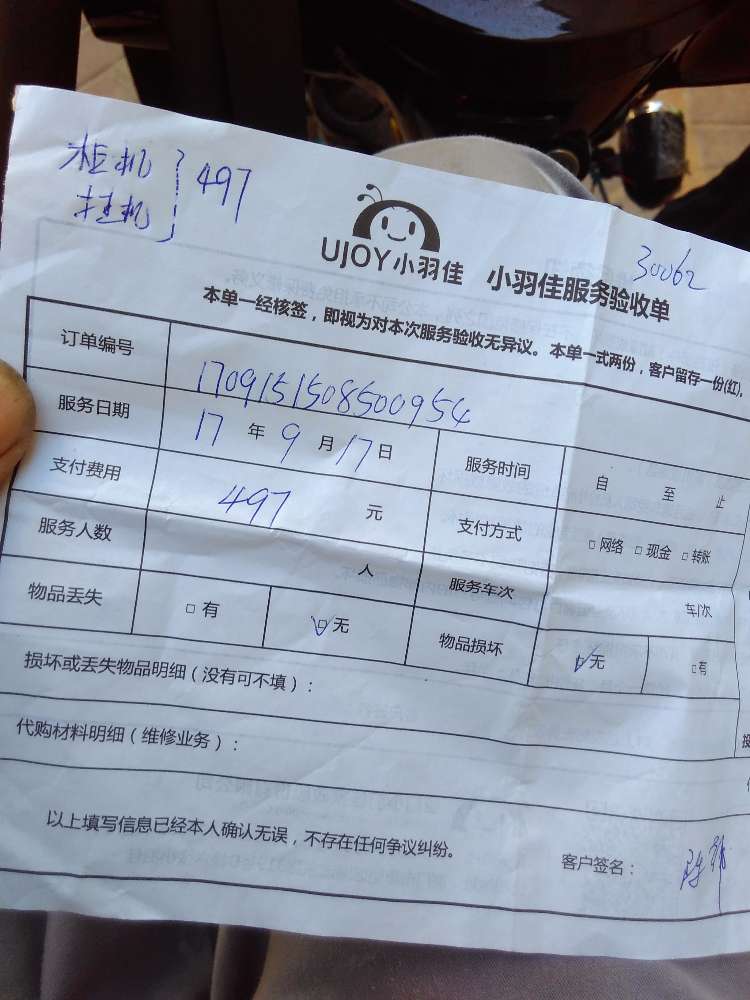 柜机 497
挂机
30062
UJOY小羽佳 小羽佳服务验收单
本单一经核签，即视为对本次服务验收无异议。本单一式两份，客户留存一份(红)，
订单编号 170915150850 0954
服务日期 17 年 9 月 17 日 服务时间 自 至 止
支付费用 497 元 支付方式 □ 网络 □ 现金 □ 转账
服务人数 人 服务车次 车/次
物品丢失 □ 有 ☑ 无 物品损坏 ☑ 无 □ 有
损坏或丢失物品明细（没有可不填）：
代购材料明细（维修业务）：
以上填写信息已经本人确认无误，不存在任何争议纠纷。 客户签名：